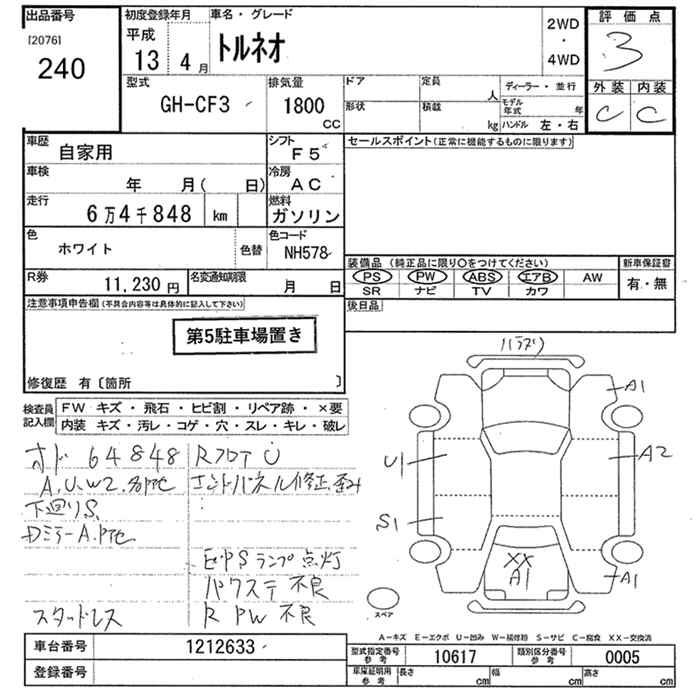 出品番号
[2076]
240
初度登録年月
平成
13 4月
車名・グレード
トルネオ
2WD
・
4WD
評価点
3
外装 内装
C C
型式
GH-CF3
排気量
1800
CC
ドア
定員
人
形状
積載
kg
ディーラー・並行
モデル年式 年
ハンドル 左・右
車歴
自家用
シフト
F5
セールスポイント(正常に機能するものに限ります)
車検
年 月( 日)
冷房
AC
走行
6万4千848 km
燃料
ガソリン
色
ホワイト
色替
色コード
NH578
装備品(純正品に限り〇をつけてください)
PS PW ABS エアB AW
SR ナビ TV カワ
新車保証書
有・無
R券
11,230円
名変通知期限
月 日
後日品
注意事項申告欄(不具合内容等は具体的に記入して下さい)
第5駐車場置き
修復歴 有〔箇所 〕
検査員記入欄
FW キズ・飛石・ヒビ割・リペア跡・×要
内装 キズ・汚レ・コゲ・穴・スレ・キレ・破レ
オド 64848
A,U,W2,多PTC
下回りS
DミラーA.PTC
スタッドレス
RフロアU
エンドパネル修正歪み
EPSランプ点灯
パワステ不良
R PW 不良
A1
U1
A2
S1
XX
A1
A1
スペア
A-キズ E-エクボ U-凹み W-補修跡 S-サビ C-腐食 XX-交換済
車台番号
1212633
登録番号
型式指定番号
参考
10617
類別区分番号
参考
0005
車庫証明用
参考
長さ cm
幅 cm
高さ cm